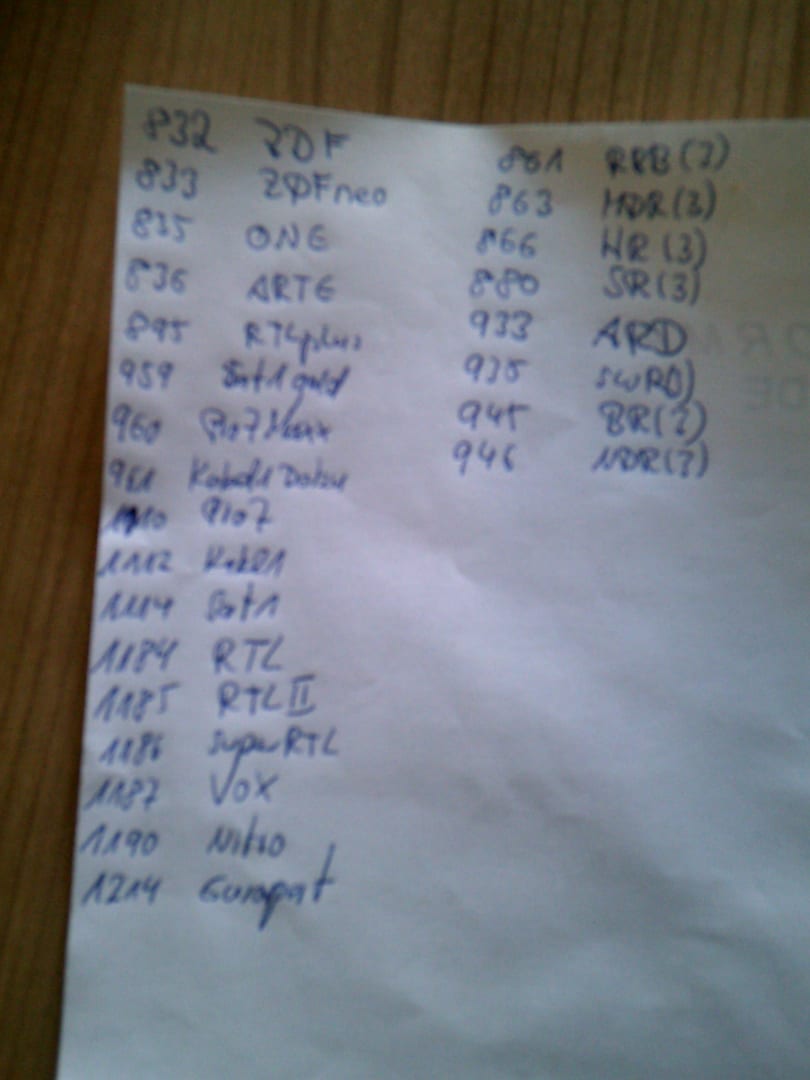 832 ZDF
833 ZDFneo
835 ONE
836 ARTE
895 RTLplus
959 Sat1gold
960 Pro7Maxx
961 Kabel1Doku
1110 Pro7
1112 Kabel1
1114 Sat1
1184 RTL
1185 RTLII
1186 SuperRTL
1187 VOX
1190 Nitro
1214 Europat
861 RBB(3)
863 MDR(3)
866 HR(3)
880 SR(3)
933 ARD
935 SWR(3)
945 BR(3)
946 NDR(3)